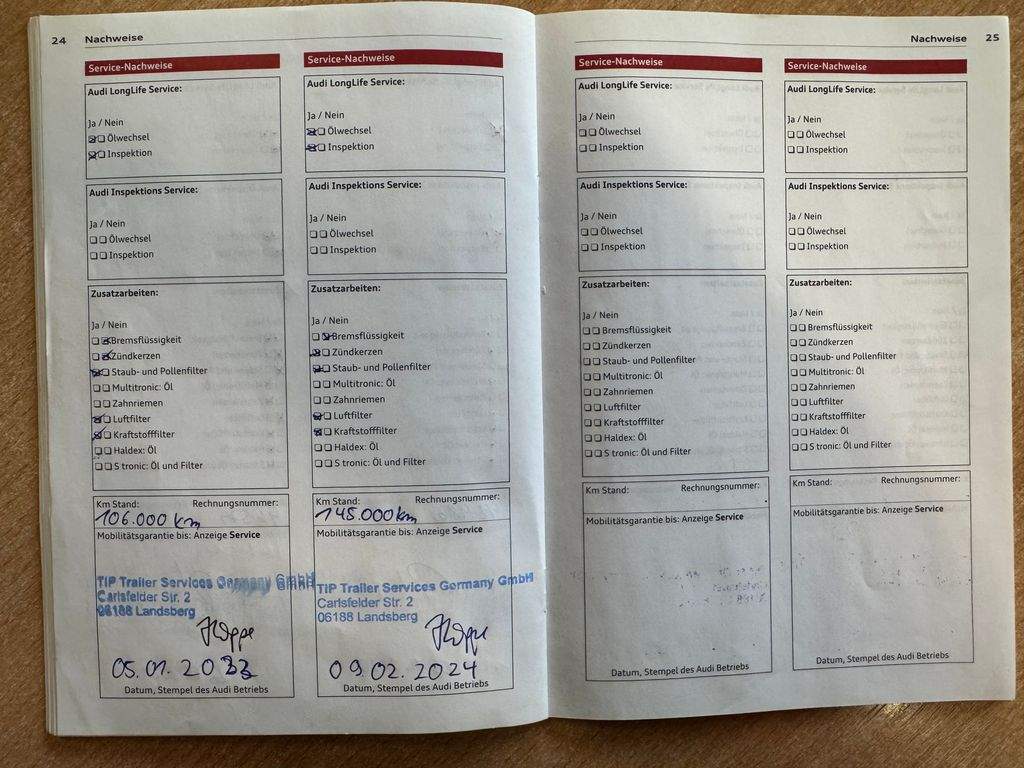 24 Nachweise
Service-Nachweise
Audi LongLife Service:
Ja / Nein
Ölwechsel
Inspektion
Audi Inspektions Service:
Ja / Nein
Ölwechsel
Inspektion
Zusatzarbeiten:
Ja / Nein
Bremsflüssigkeit
Zündkerzen
Staub- und Pollenfilter
Multitronic: Öl
Zahnriemen
Luftfilter
Kraftstofffilter
Haldex: Öl
S tronic: Öl und Filter
Km Stand: Rechnungsnummer:
106.000 km
Mobilitätsgarantie bis: Anzeige Service
TIP Trailer Services Germany GmbH
Carlsfelder Str. 2
06188 Landsberg
05.01.2023
Datum, Stempel des Audi Betriebs
Service-Nachweise
Audi LongLife Service:
Ja / Nein
Ölwechsel
Inspektion
Audi Inspektions Service:
Ja / Nein
Ölwechsel
Inspektion
Zusatzarbeiten:
Ja / Nein
Bremsflüssigkeit
Zündkerzen
Staub- und Pollenfilter
Multitronic: Öl
Zahnriemen
Luftfilter
Kraftstofffilter
Haldex: Öl
S tronic: Öl und Filter
Km Stand: Rechnungsnummer:
145.000km
Mobilitätsgarantie bis: Anzeige Service
TIP Trailer Services Germany GmbH
Carlsfelder Str. 2
06188 Landsberg
09.02.2024
Datum, Stempel des Audi Betriebs
Nachweise 25
Service-Nachweise
Audi LongLife Service:
Ja / Nein
Ölwechsel
Inspektion
Audi Inspektions Service:
Ja / Nein
Ölwechsel
Inspektion
Zusatzarbeiten:
Ja / Nein
Bremsflüssigkeit
Zündkerzen
Staub- und Pollenfilter
Multitronic: Öl
Zahnriemen
Luftfilter
Kraftstofffilter
Haldex: Öl
S tronic: Öl und Filter
Km Stand: Rechnungsnummer:
Mobilitätsgarantie bis: Anzeige Service
Datum, Stempel des Audi Betriebs
Service-Nachweise
Audi LongLife Service:
Ja / Nein
Ölwechsel
Inspektion
Audi Inspektions Service:
Ja / Nein
Ölwechsel
Inspektion
Zusatzarbeiten:
Ja / Nein
Bremsflüssigkeit
Zündkerzen
Staub- und Pollenfilter
Multitronic: Öl
Zahnriemen
Luftfilter
Kraftstofffilter
Haldex: Öl
S tronic: Öl und Filter
Km Stand: Rechnungsnummer:
Mobilitätsgarantie bis: Anzeige Service
Datum, Stempel des Audi Betriebs